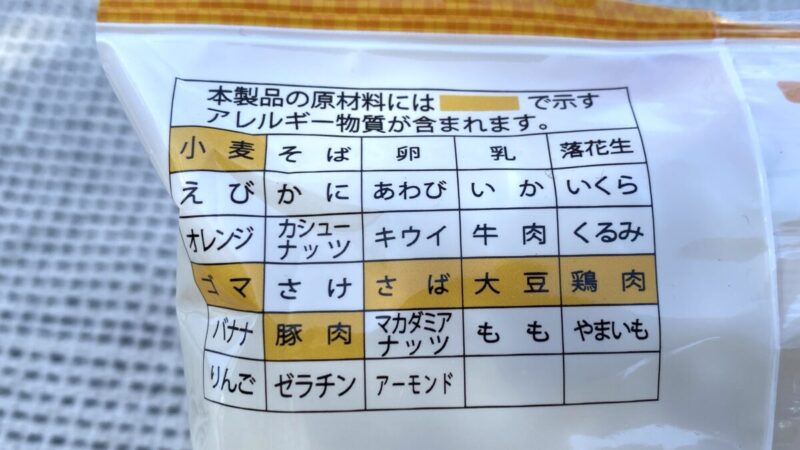 本製品の原材料には で示す
アレルギー物質が含まれます。
小麦 そば 卵 乳 落花生
えび かに あわび いか いくら
オレンジ カシューナッツ キウイ 牛肉 くるみ
ゴマ さけ さば 大豆 鶏肉
バナナ 豚肉 マカダミアナッツ もも やまいも
りんご ゼラチン アーモンド